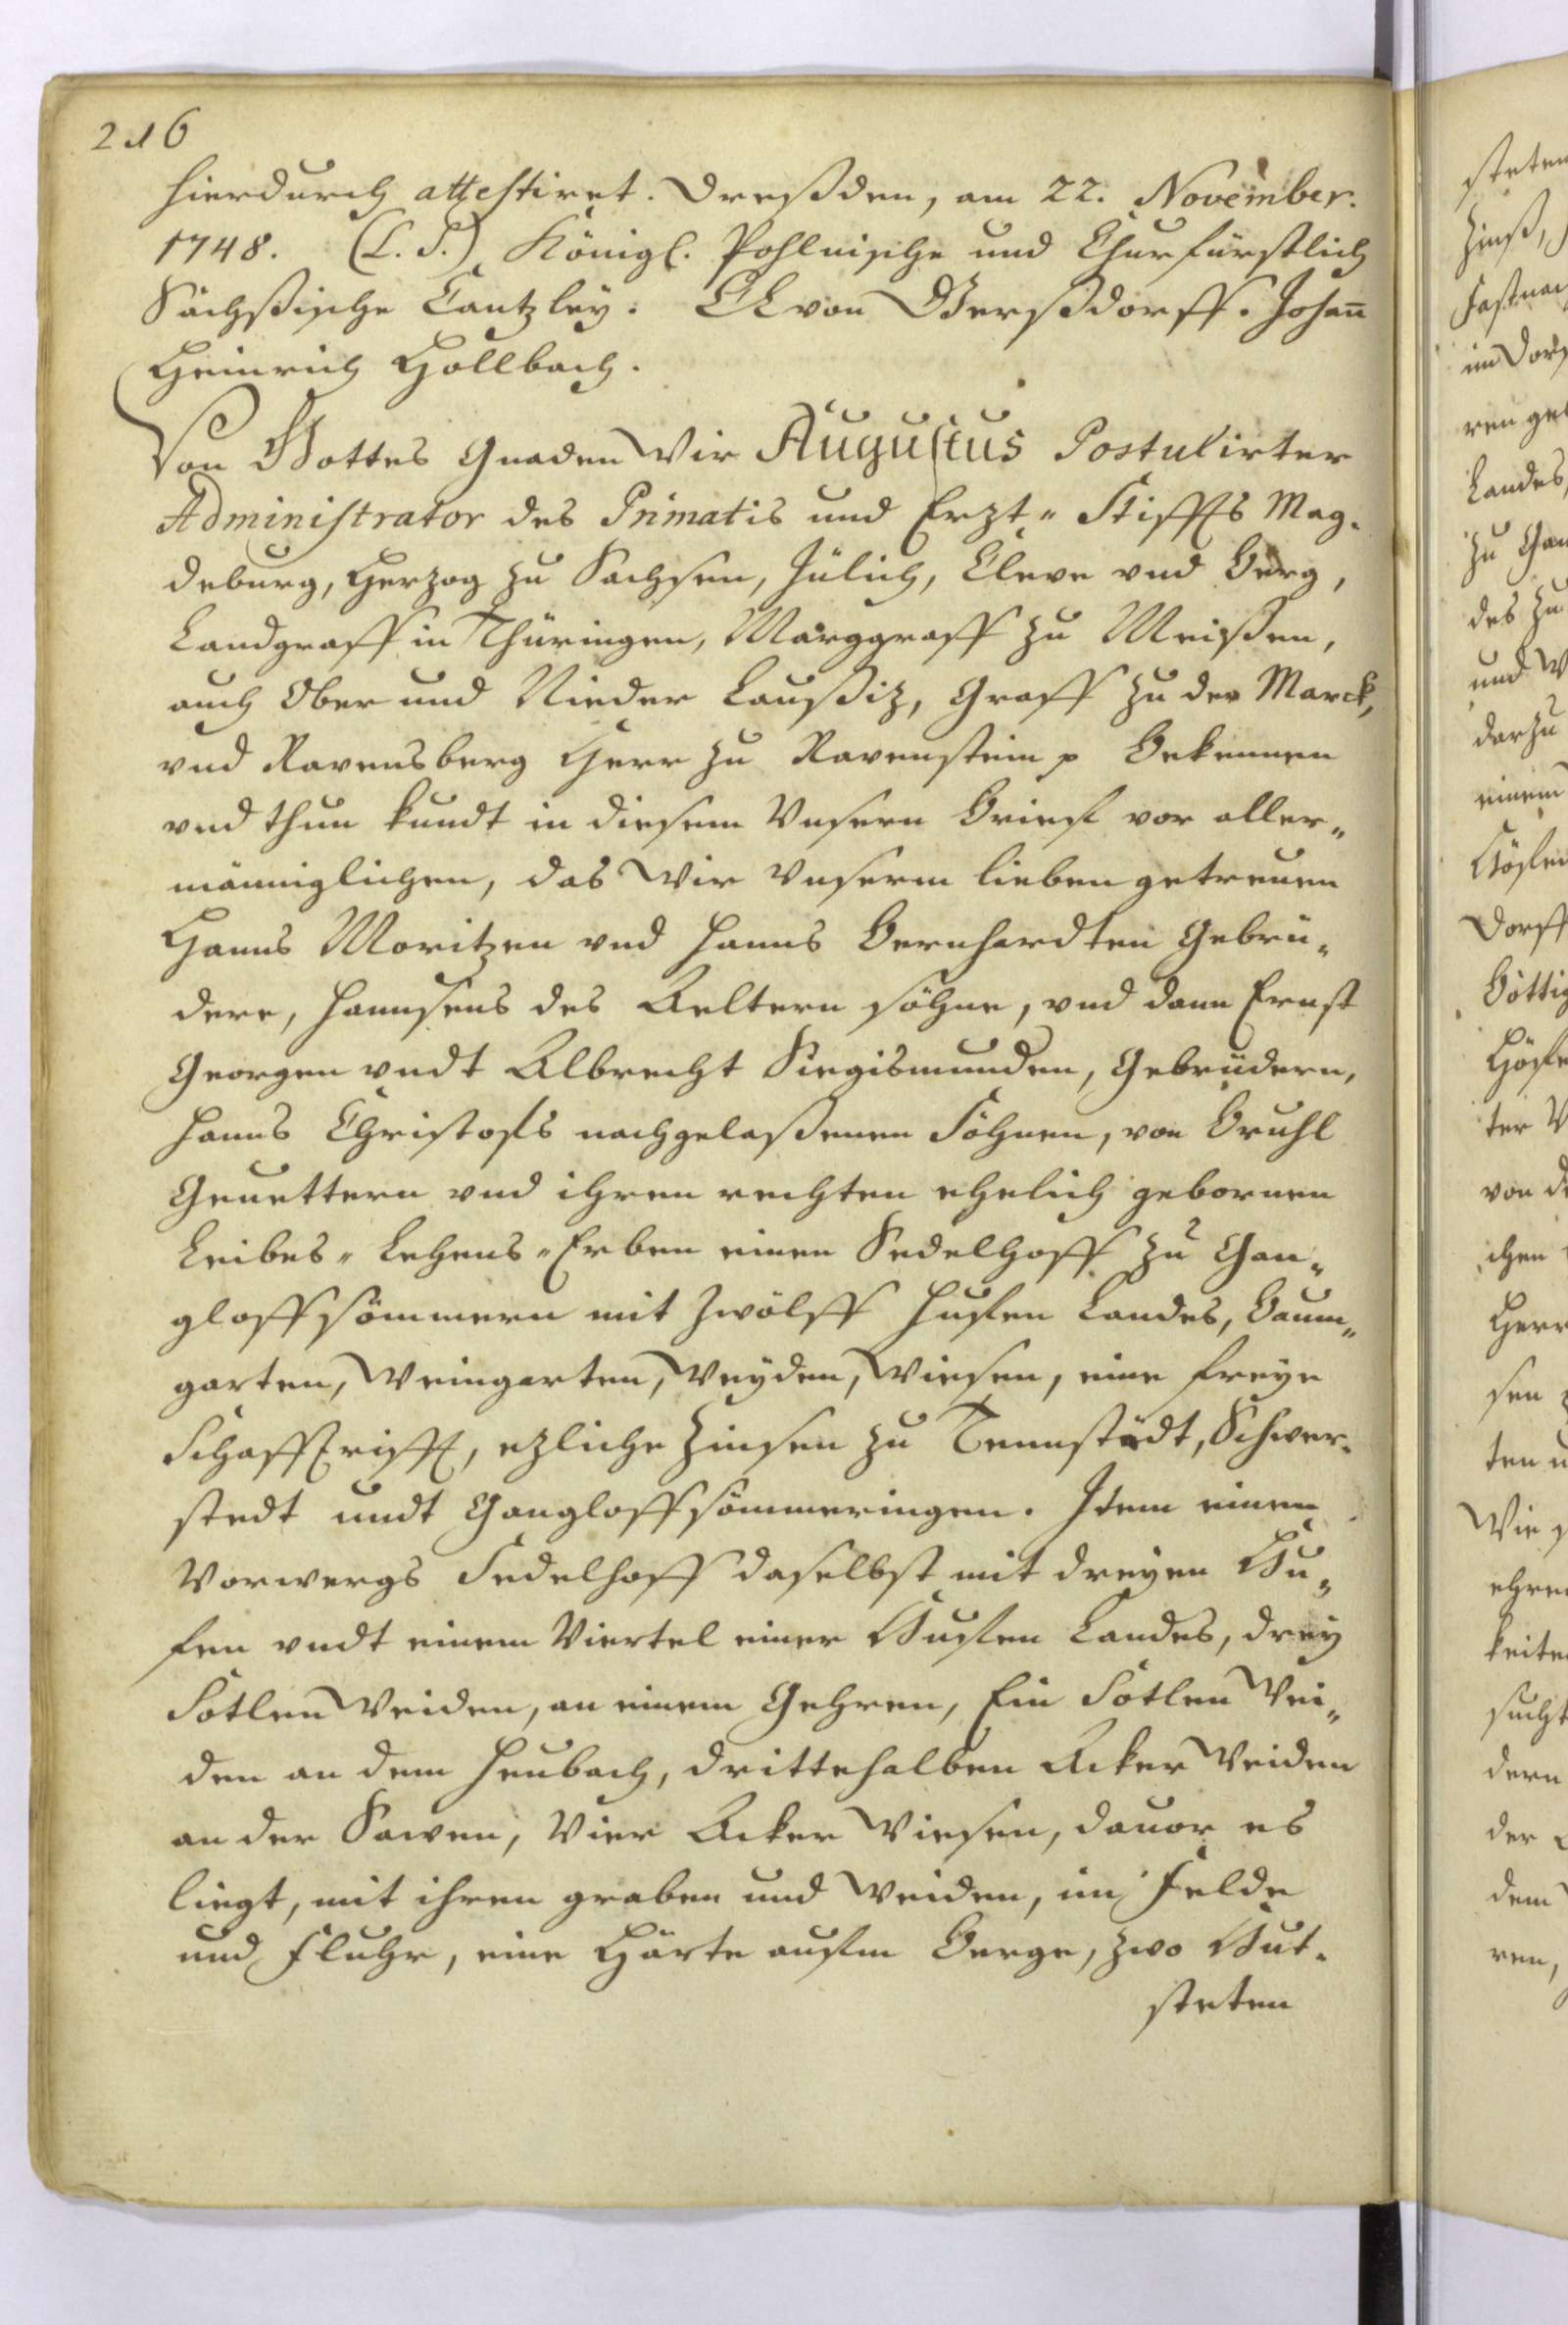 216
hierdurch attestiret. Dreßden, am 22. November.
1748. (L. S.) Königl. Pohlnische und Churfürstlich
Sächßische Cantzley. von Gerßdorff. Johañ
Heinrich Hollbach.
Von Gottes Gnaden Wir Augustus Postulirter
Administrator des Primatis und Erzt-Stiffts Mag-
deburg, Herzog zu Sachsen, Jülich, Cleve vnd Berg,
Landgraff in Thüringen, Marggraff zu Meißen,
auch Ober und Nieder Laußiz, Graff zu der Marck,
vnd Ravensberg Herr zu Ravenstein p Bekennen
vnd thun kundt in diesem Vnsern Brieff vor aller-
männiglichen, das Wir Vnserm lieben getreuen
Hanns Moritzen vnd Hanns Bernhardten Gebrü-
dere, Hannsens des Aeltern söhne, vnd dann Ernst
Georgen vndt Albrecht Siegismunden, Gebrüdern,
Hanns Christoffs nachgelaßenen Söhnen, von Bruhl
Geuettern vnd ihren rechten ehelich gebornen
Leibes-Lehens-Erben einen Sedelhoff zu Gan-
gloffsömmern mit Zwölff Huffen Landes, Baum-
garten, Weingarten, Weyden, Wiesen, eine freye
Schafftrifft, ezliche Zinsen zu Tennstädt, Schwer-
stedt undt Gangloffsömmeringen. Item einen
Vorwergs Sedelhoff daselbst mit dreyen Hu-
fen vndt einem Viertel einer Huffen Landes, drey
Sotlen Weiden, an einem Gehren, Ein Sotlen Wei-
den an dem Heubach, drittehalben Acker Weiden
an der Sawen, Vier Acker Wiesen, dauor es
liegt, mit ihren graben und Weiden, im Felde
und Fluhr, eine Härte auffm Berge, zwo Hut-
steten